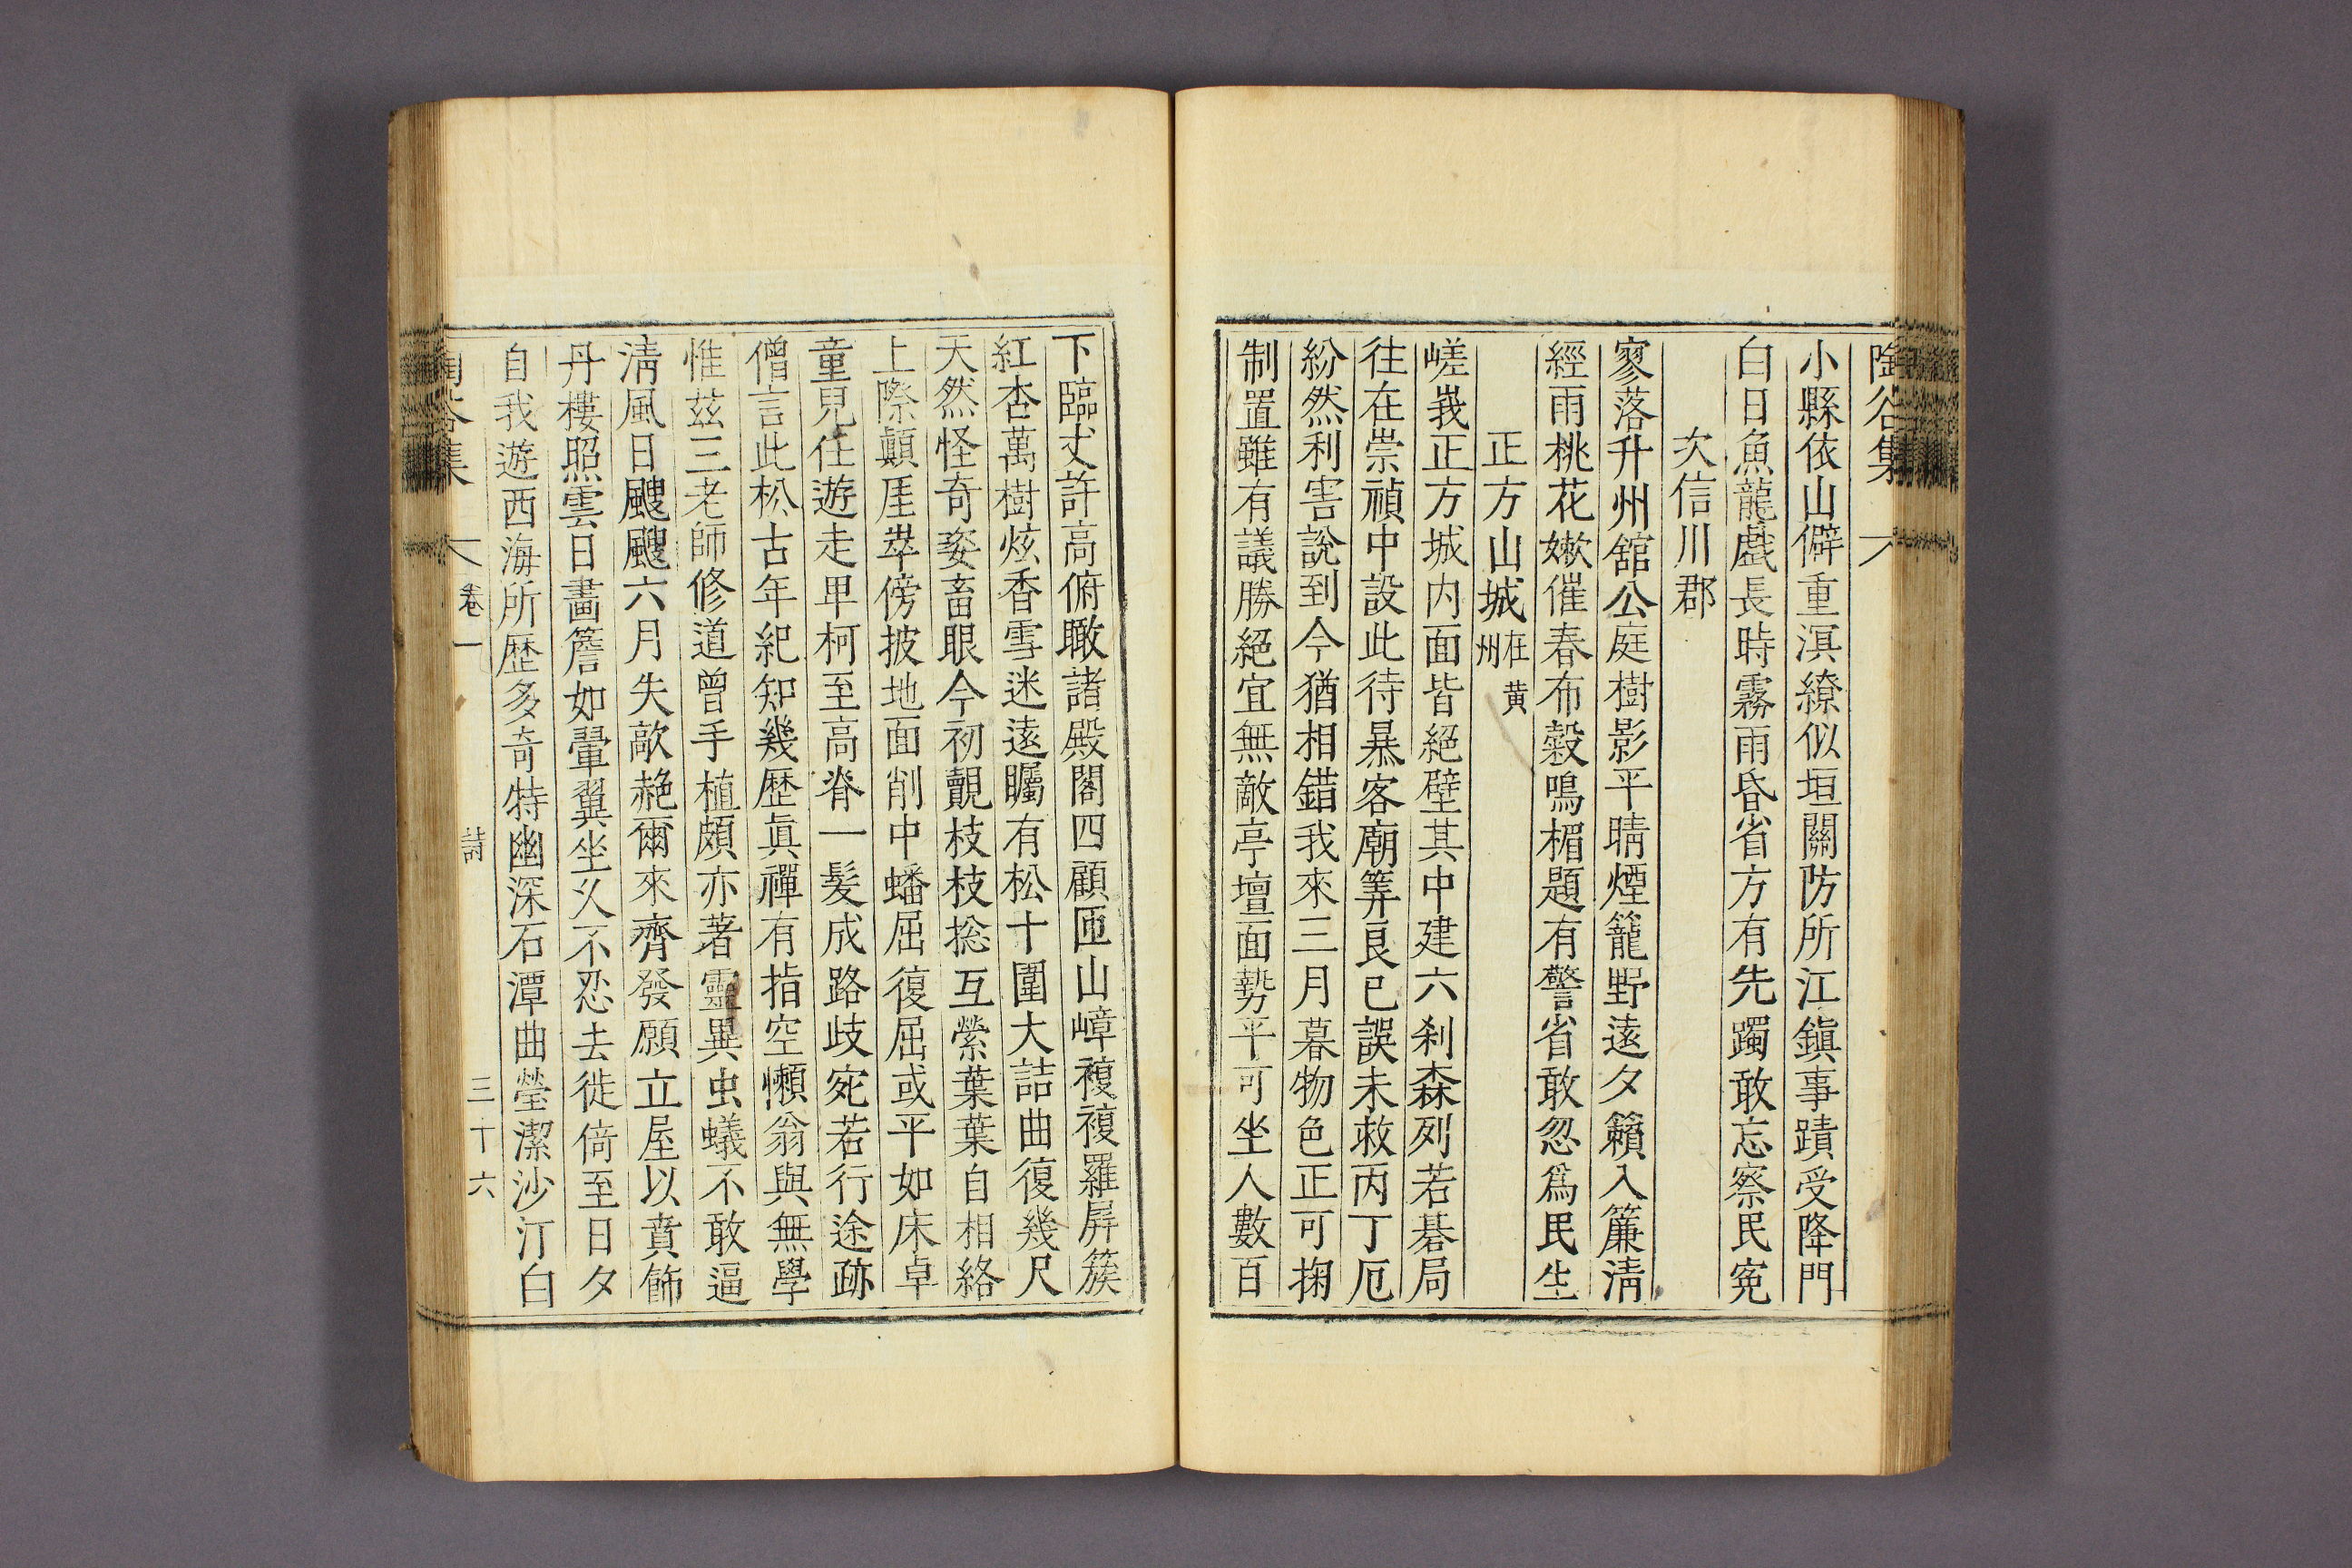 陶谷集
小縣依山僻重溟繚似垣關防所江鎭事蹟受降門
白日魚龍戲長時霧雨昏省方有先躅敢忘察民寃
次信川郡
寥落升州舘公庭樹影平晴煙籠野遠夕籟入簾淸
經雨桃花嫰催春布穀鳴楣題有警省敢忽爲民生
正方山城在黄州
嵯峩正方城内面皆絕壁其中建六刹森列若碁局
往在崇禎中設此待暴客廟筭良已誤未救丙丁厄
紛然利害說到今猶相錯我來三月暮物色正可掬
制置雖有議勝絕宜無敵亭壇面勢平可坐人數百
下臨丈許高俯瞰諸殿閣四顧匝山嶂複複羅屛簇
紅杏萬樹炫香雪迷遠矚有松十圍大詰曲復幾尺
天然怪奇姿畜眼今初覿枝枝捴互縈葉葉自相絡
上際顚厓崒傍披地面削中蟠屈復屈或平如床卓
童兒任遊走畢柯至高脊一髮成路歧宛若行途跡
僧言此松古年紀知幾歷眞禪有指空懶翁與無學
惟茲三老師修道曾手植頗亦著靈異虫蟻不敢逼
淸風日颼颼六月失歊赩爾來齊發願立屋以賁餙
丹樓照雲日畵簷如翬翼坐久不忍去徙倚至日夕
自我遊西海所歷多奇特幽深石潭曲瑩潔沙汀白
陶谷集 卷一 詩 三十六